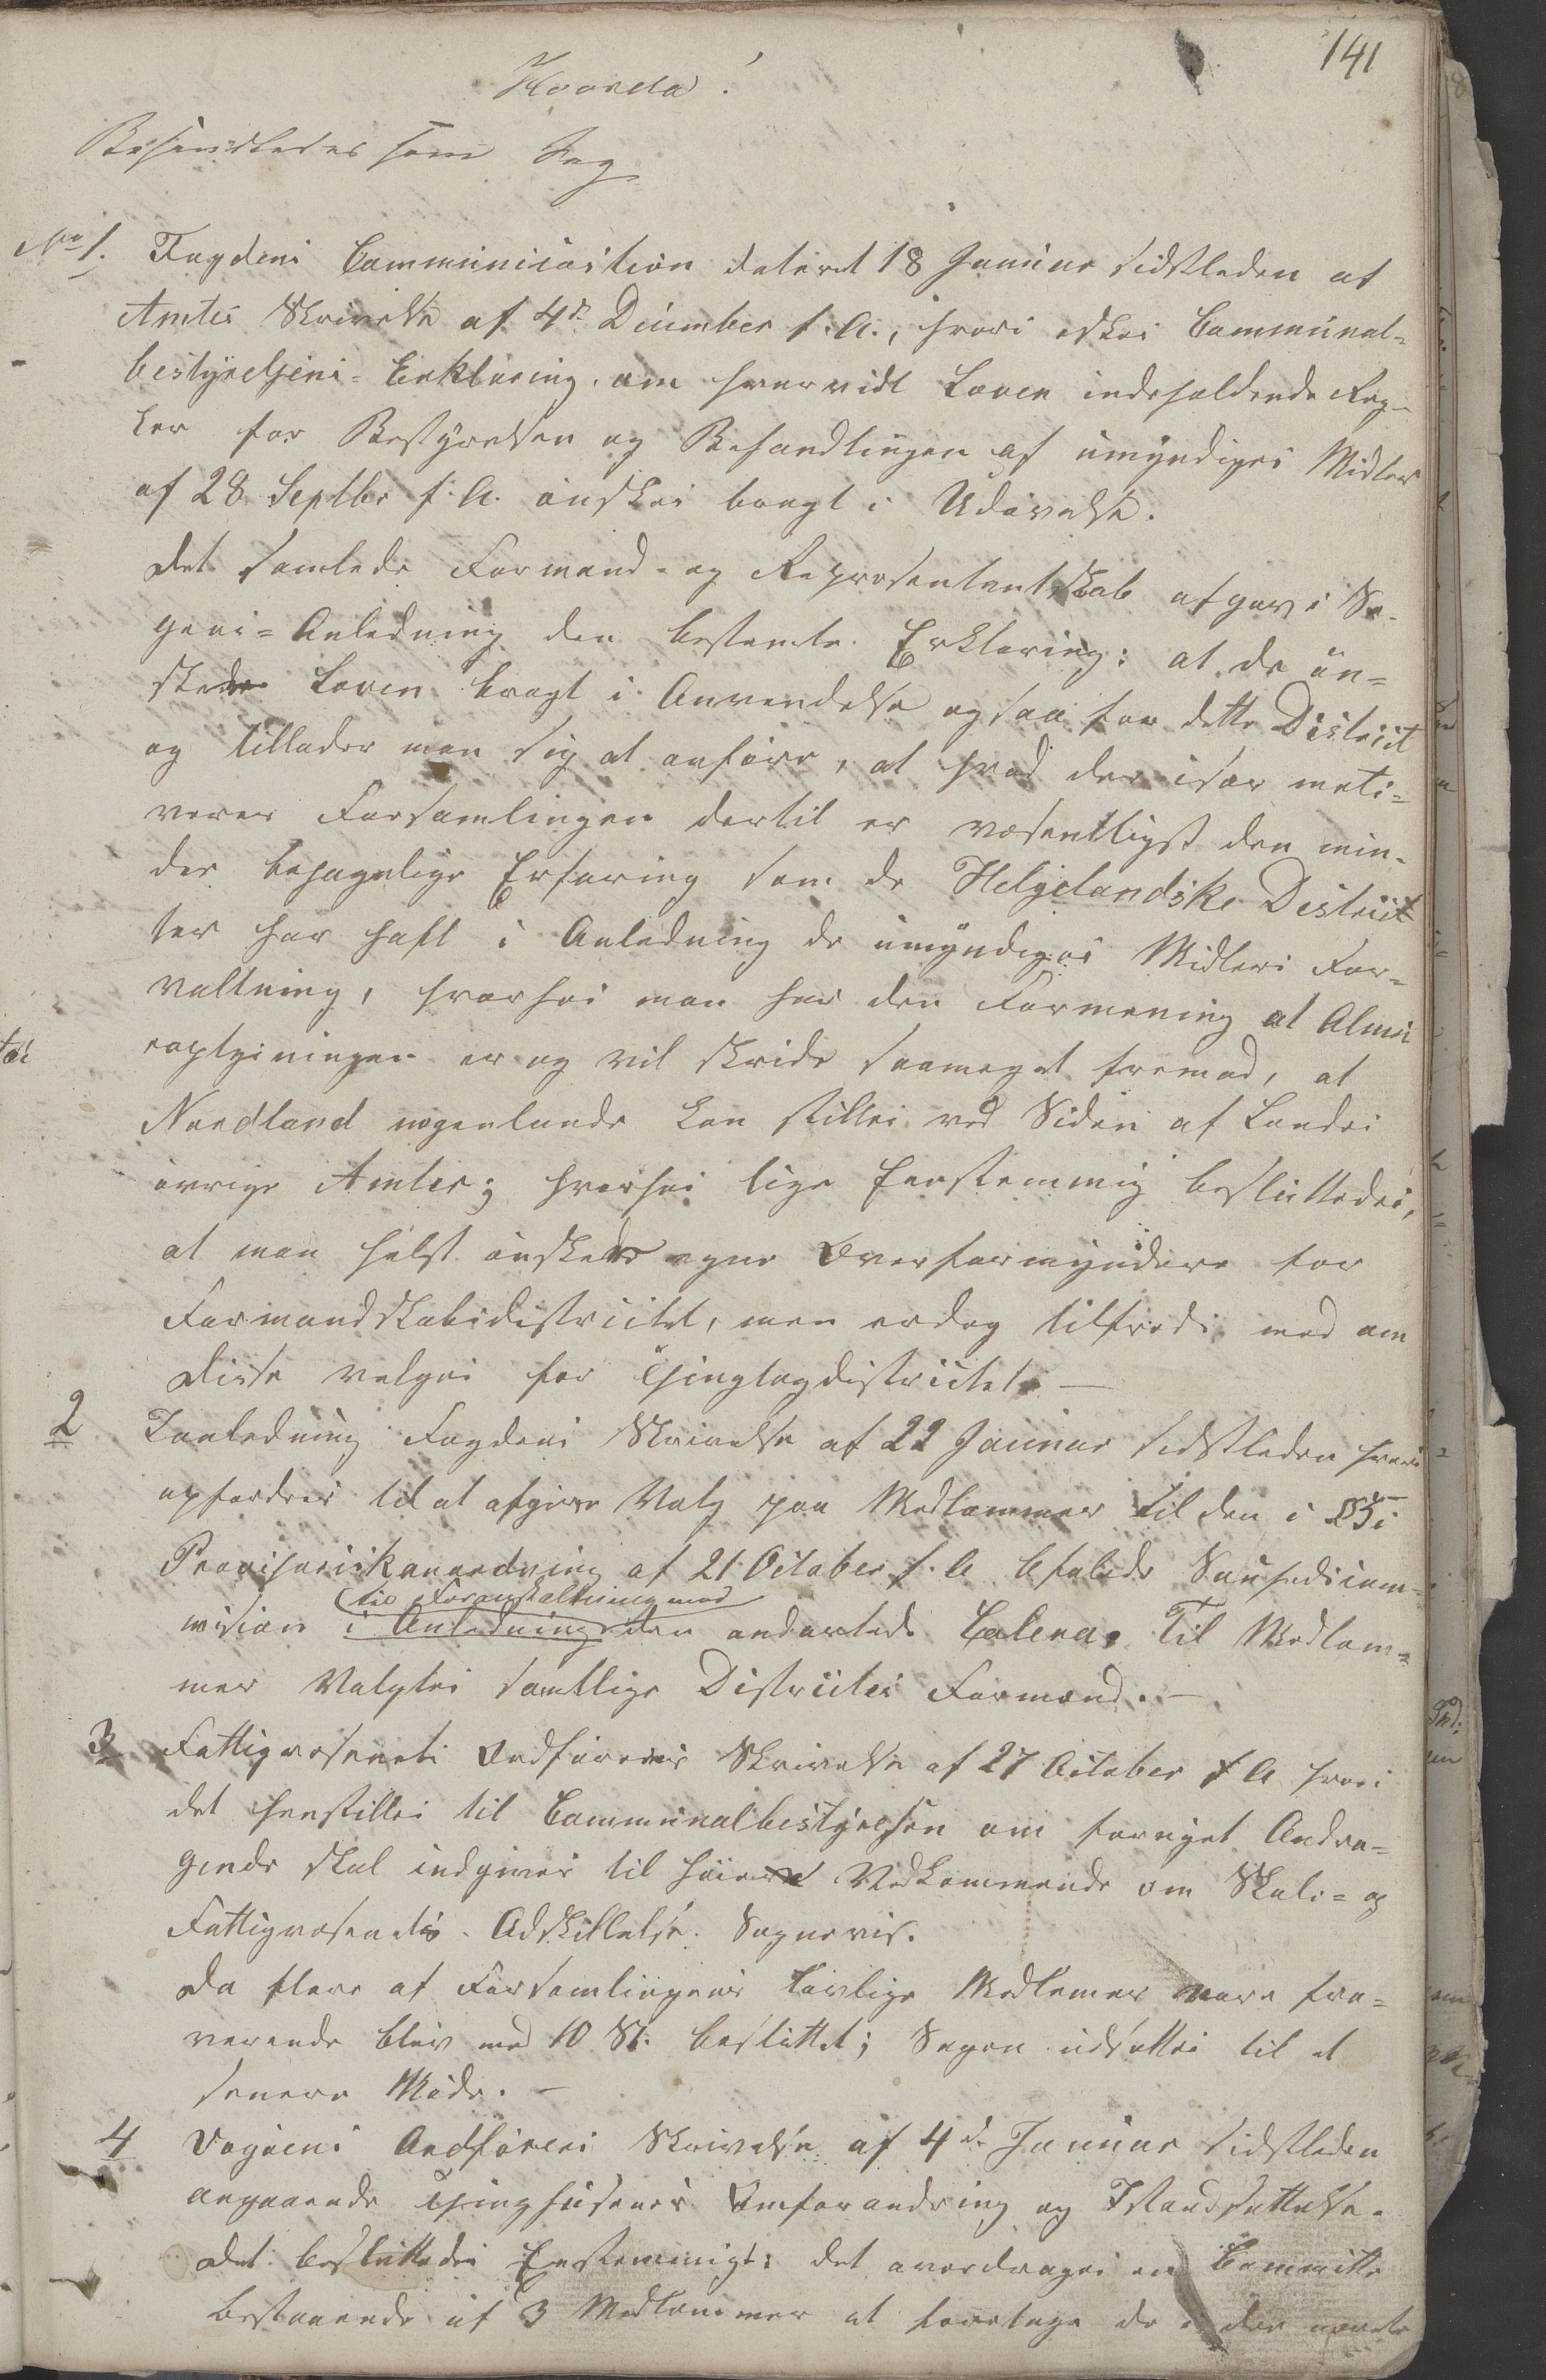 141
Hvorda!
Behandledes som Sag
No 1. Fogdens Communication dateret 18 Januar sidstleden af
Amtes Skrivelse af 4de December f. A., hvori æskes Communal-
bestyrelsens Erklæring om hvorvidt Loven indeholdende Reg-
ler for Bestyrelsen og Behandlingen af umyndiges Midler
af 28 Septbr f. A. ønskes bragt i Udøvelse.
Det samlede Formand- og Repræsentantskab afgav i Sa-
gens Anledning den bestemte Erklæring: at de øn-
skede Loven bragt i Anvendelse ogsaa for dette District
og tillader man sig at anføre, at hvad der især moti-
verer Forsamlingen dertil er væsentligst den min-
der behagelige Erfaring som de Helgelandske District
ter har haft i Anledning de umyndiges Midlers For-
valtning, hvorhos man har den Formening at Almu
eoplysningen er og vil skride saameget fremad, at
Nordland nogenlunde kan stilles ved Siden af Landes
øvrige Amter; hvorhos lige Eenstemmig besluttedes,
at man helst ønskede egne Overformyndere for
Formandskabsdistrictet, men er dog tilfreds med om
disse velges for Thinglagdistrictet. —
2 I Anledning Fogdens Skrivelse af 22 Januar sidstleden hvori
opfordres til at afgive Valg paa Medlemmer til den i §3 i
Provisorisk anordning af 21 October f. A. befalede Sundhedscom-
mision i Anledning den andartede Colera. Til Medlem-
til Foranstaltning mod
mer Valgtes samtlige Districtes Formænd. —
3 Fattigvæsenets Ordførers Skrivelse af 27 October f A hvori
det henstilles til Communalbestyrelsen om fornyet Andra-
gende skal indgives til høiere Vedkommende om Skole- og
Fattigvæsendts Adskillelse Sognevis.
Da flere af Forsamlingens lovlige Medlemer vare fra-
værende blev med 10 St. besluttet; Sagen udsættes til et
senere Møde. —
4 Vogens Ordførers Skrivelse af 4de Januar sidstleden
angaaende Thinghusenes Omforandring og Istandsættelse.
Det besluttedes Eenstemmigt: det overdrages en Committe
bestaaende af 3 Medlemmer at foretage de i den